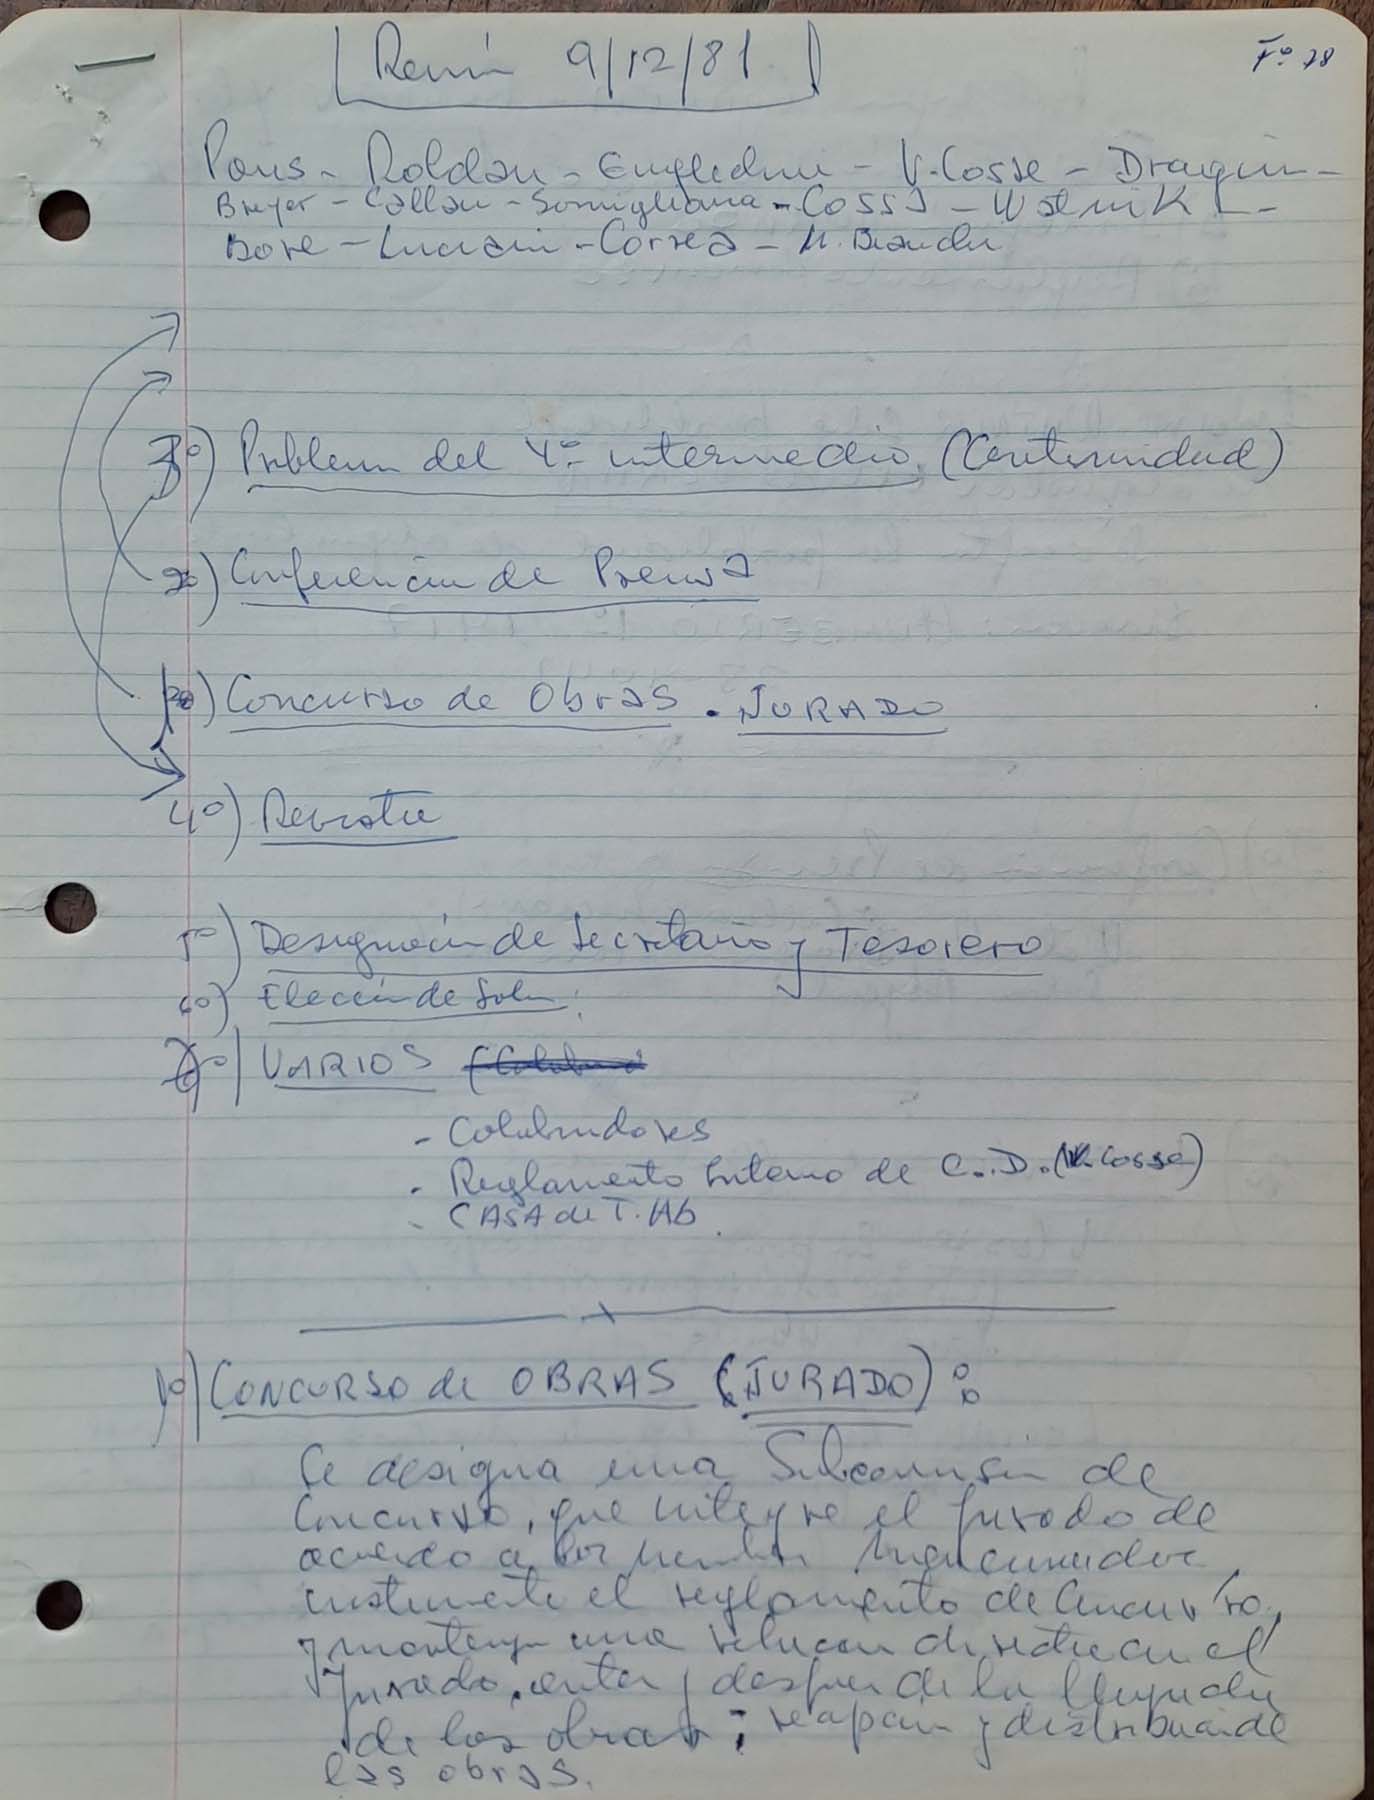 Reunión 9/12/81
Fº 78
Pous - Roldán - - V. Cosse - Dragún -
- Callau - Somigliana - Cossa - Wolnik -
Bove - Luciani - Correa - M. Bianchi
3º) Problema del 4º intermedio (Continuidad)
2º) Conferencia de Prensa
1º) Concurso de Obras . JURADO
4º) Revista
5º) Designación de Secretario y Tesorero
6º) Elección de Sala
7º) VARIOS
- Colaboradores
- Reglamento Interno de C.D. (V. Cosse)
- CASA de T. Ab
1º) CONCURSO de OBRAS (JURADO):
Se designa una Subcomisión de
Concurso, que integre el Jurado de
acuerdo a los mencionados
instrumente el reglamento de Concurso,
y mantenga una relación directa con el
Jurado, antes y después de la llegada
de las obras; recepción y distribución de
las obras.